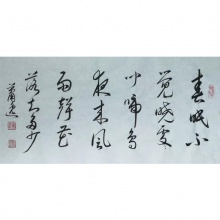 春眠不
覺曉處
聞啼鳥
夜来風
雨聲花
落知多少